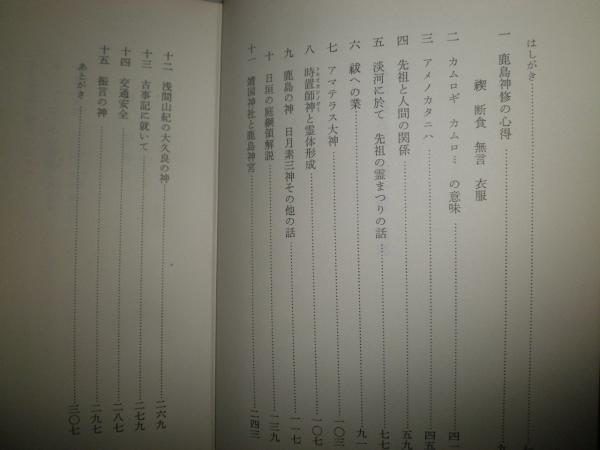 はしがき
一 鹿島神修の心得
禊 断食 無言 衣服
二 カムロギ カムロミ の意味 四一
三 アメノカタニハ 四五
四 先祖と人間の関係 五九
五 淡河に於て 先祖の霊まつりの話 七七
六 祓への業 九一
七 アマテラス大神 一〇三
八 時置師神と霊体形成 一〇七
九 鹿島の神 日月素三神その他の話 一一七
十 日垣の庭綱領解説 一三九
十一 靖国神社と鹿島神宮 二四三
十二 浅間山紀の大久良の神 二六九
十三 古事記に就いて 二七九
十四 交通安全 二八七
十五 振言の神 二九七
あとがき 三〇七